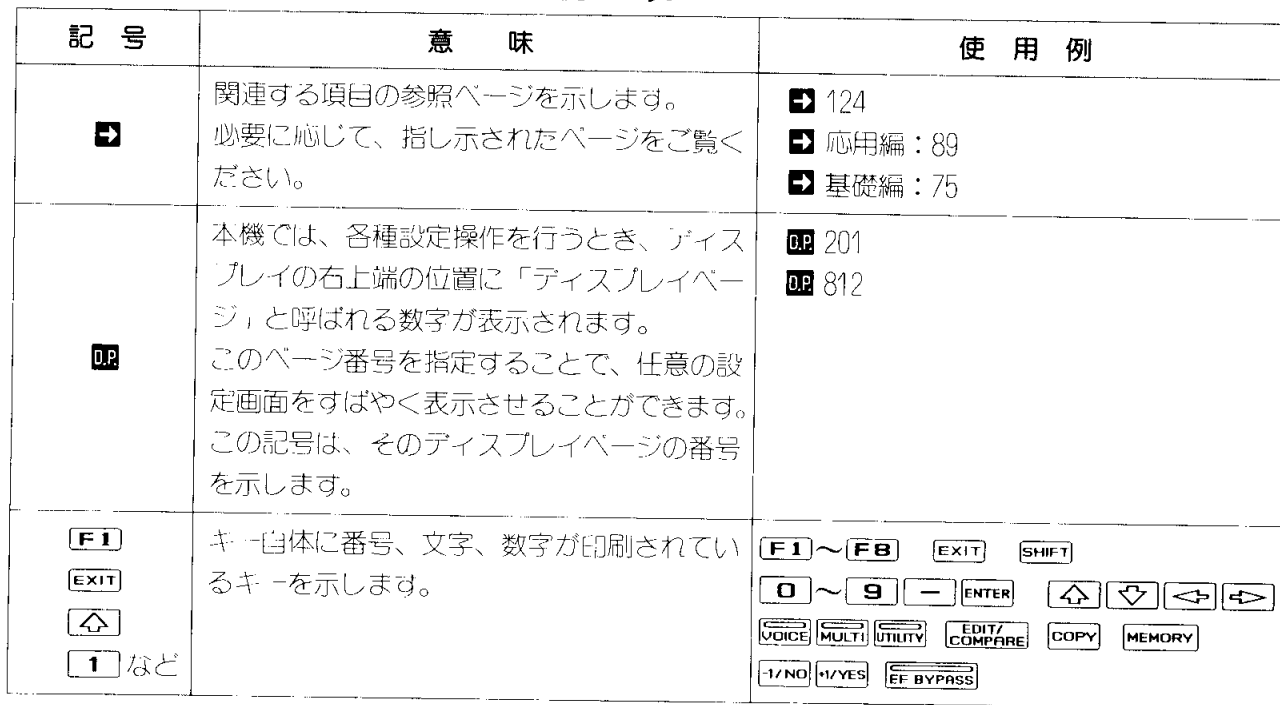 記 号
意 味
使 用 例
➡
関連する項目の参照ページを示します。
必要に応じて、指し示されたページをご覧く
ださい。
➡ 124
➡ 応用編：89
➡ 基礎編：75
D.P.
本機では、各種設定操作を行うとき、ディス
プレイの右上端の位置に「ディスプレイペー
ジ」と呼ばれる数字が表示されます。
このページ番号を指定することで、任意の設
定画面をすばやく表示させることができます。
この記号は、そのディスプレイページの番号
を示します。
D.P. 201
D.P. 812
F1
EXIT
⇧
1 など
キー自体に番号、文字、数字が印刷されてい
るキーを示します。
F1～F8 EXIT SHIFT
0～9 － ENTER ⇧ ⇩ ⇦ ⇨
VOICE MULTI UTILITY EDIT/COMPARE COPY MEMORY
-1/NO +1/YES EF BYPASS